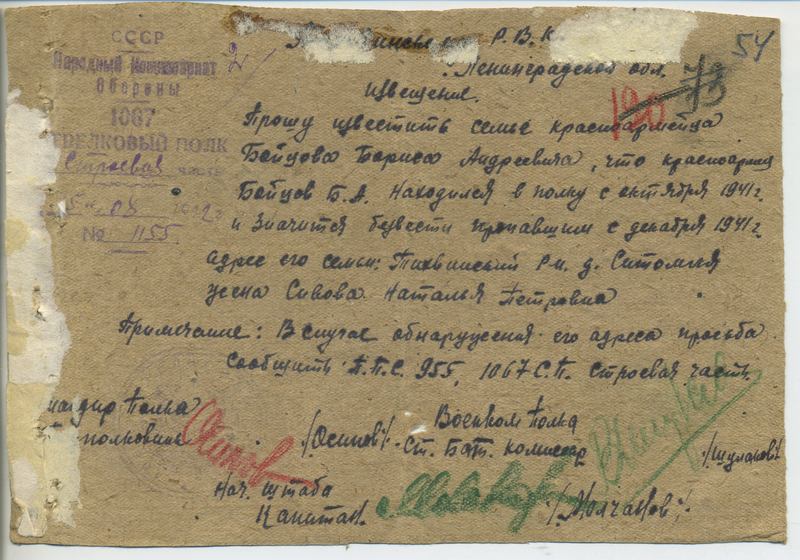 СССР
Народный Комиссариат
Обороны
1067
СТРЕЛКОВЫЙ ПОЛК
Строевая часть
№ 1155
2
Р.В.К.
54
Ленинградской обл.
120 73
извещение.
Прошу известить семье красноармейца
Бойцова Бориса Андреевича, что красноармец
Бойцов Б.А. находился в полку с октября 1941 г.
и значится безвести пропавшим с декабря 1941 г.
адрес его семьи: Тихвинский р-н. д. Ситомля
жена Сивова Наталья Петровна
Примечание: В случае обнаружения его адреса просьба
сообщить П.П.С. 955, 1067 С.П. Строевая часть.
Полка
Военком Полка
/Осипов/
Ст. Бат. комиссар
/Шулаков/
Нач. штаба
Капитан
/Молчанов/